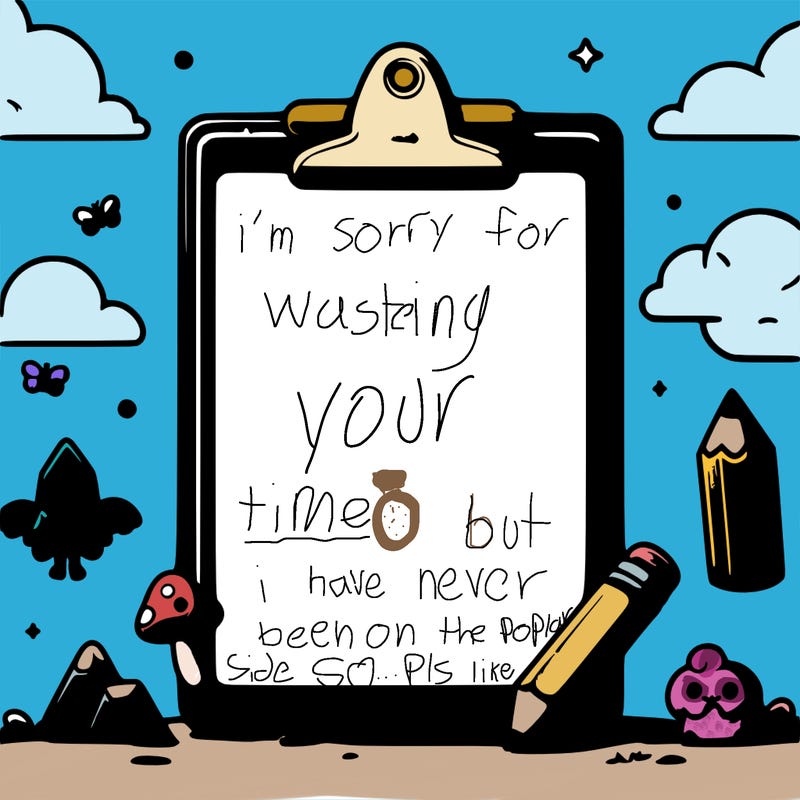 i'm sorry for
wasteing
your
time but
i have never
been on the poplar
side so... Pls like